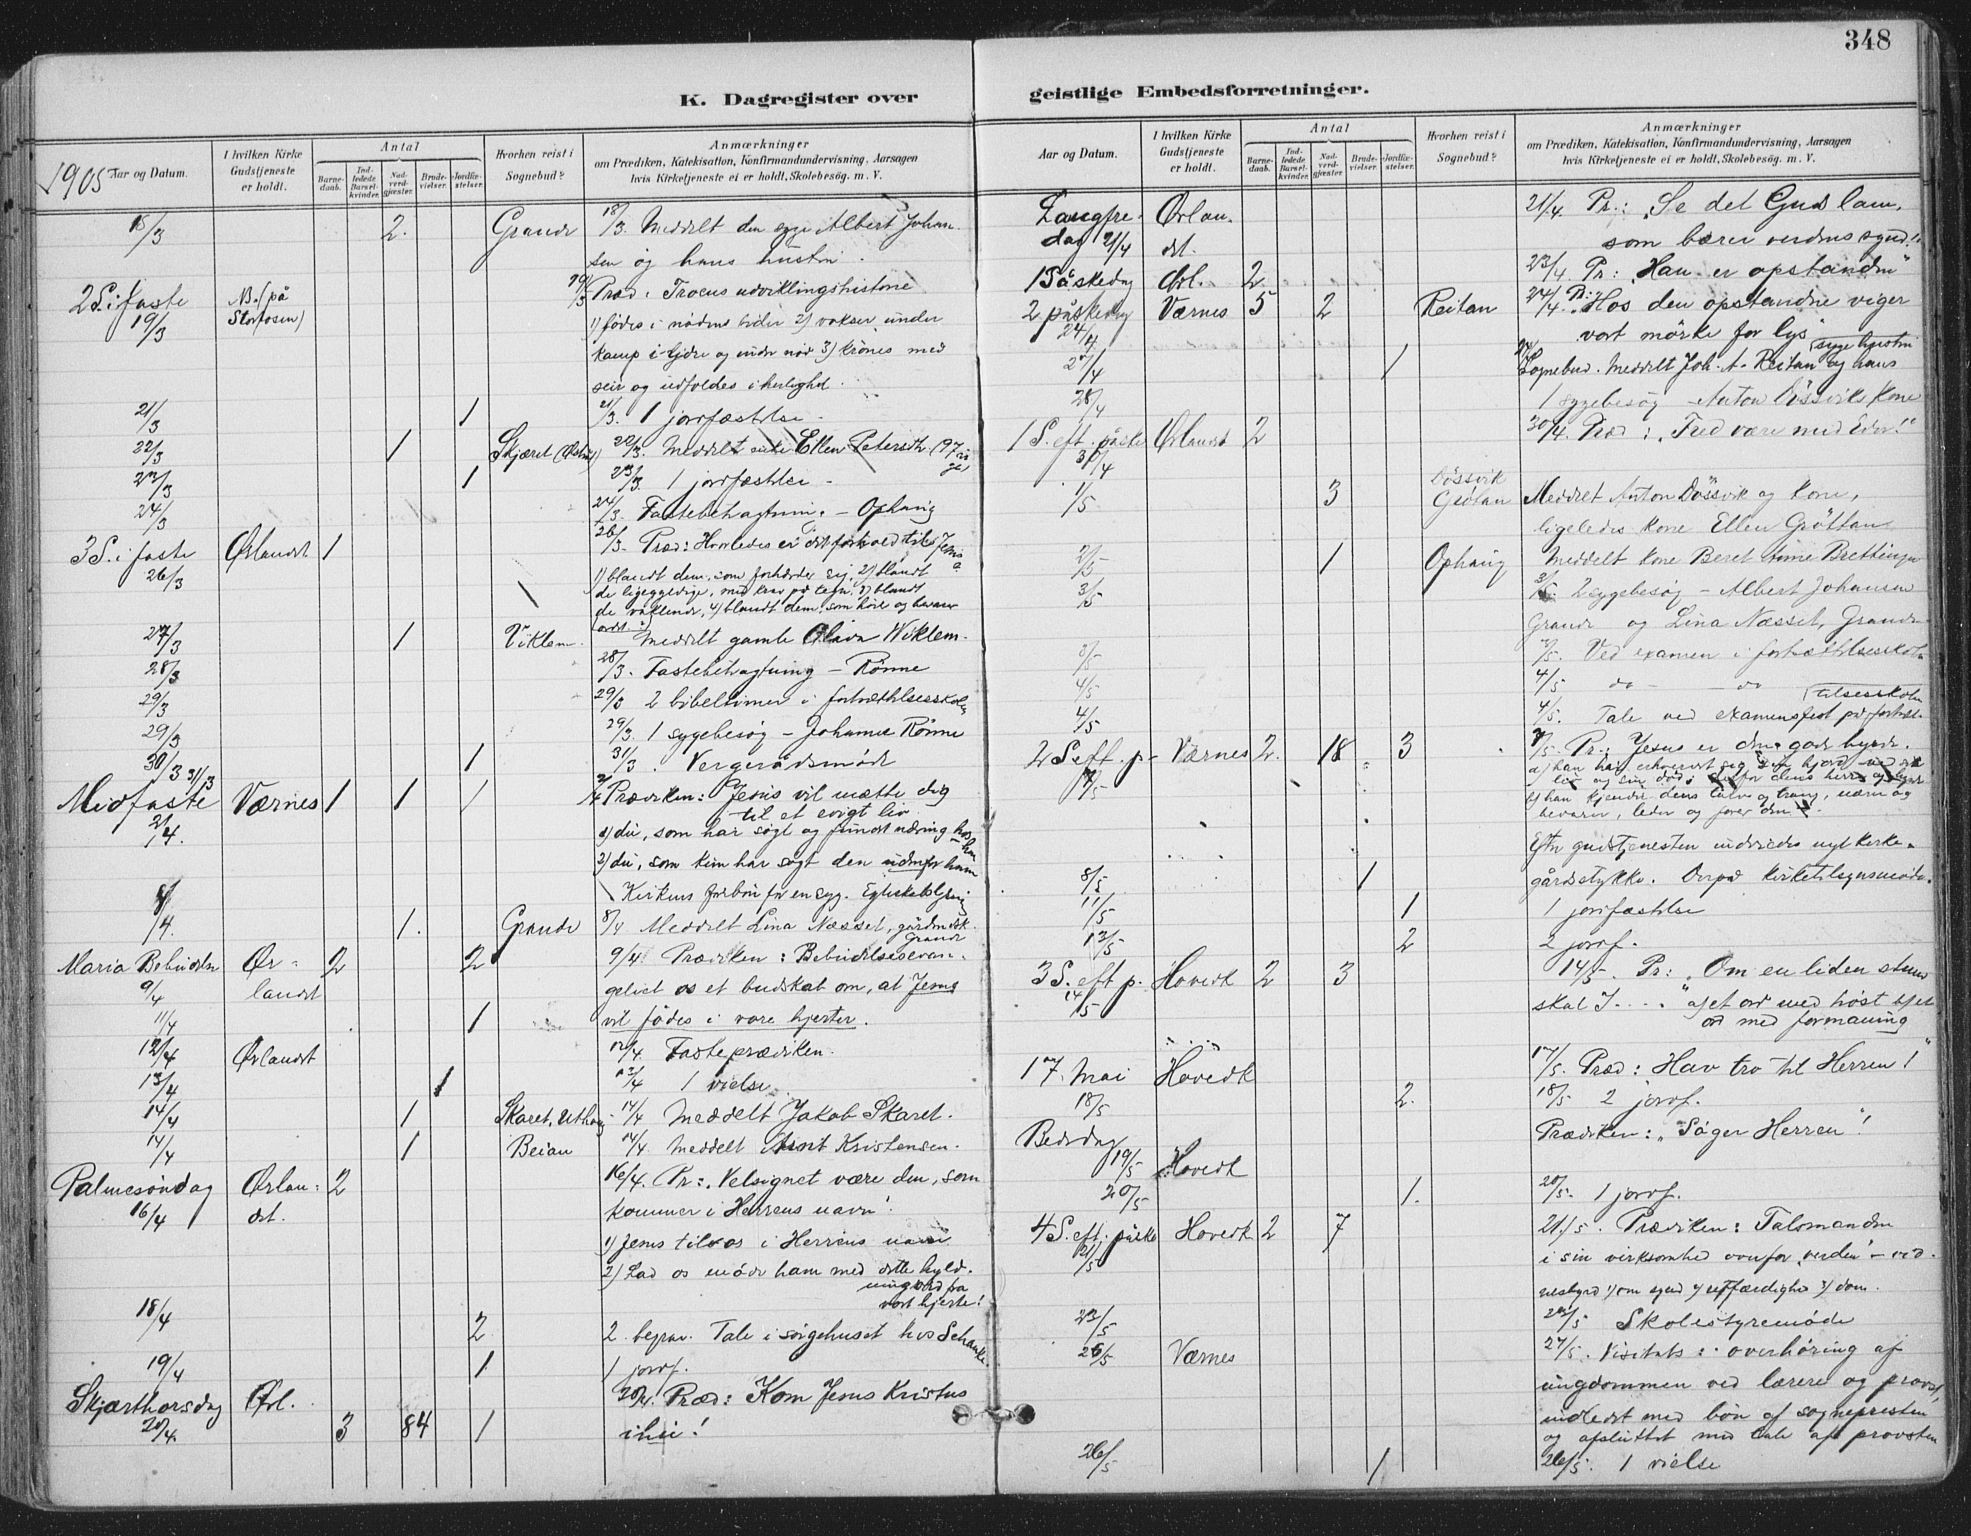 348
K. Dagregister over
geistlige Embedsforretninger.
1905
Aar og Datum.
I hvilken Kirke Gudstjeneste er holdt.
Antal
Barnedaab.
Indledede Barselkvinder.
Nadverdgjæster.
Brudevielser.
Jordfæstelser.
Hvorhen reist i Sognebud?
Anmærkninger
om Prædiken, Katekisation, Konfirmandundervisning, Aarsagen
hvis Kirketjeneste ei er holdt, Skolebesøg. m. V.
18/3 2. Grande 18/3. Meddelt den syge Albert Johan-
sen og hans hustru.
2 S i faste 19/3 (på Storfosen) 19/3 Præd: Troens udviklingshistorie
1) fødes i nødens tider 2) vokser under
kamp i ydre og indre nød 3) krones med
seir og udfoldes i herlighed.
21/3 1 21/3. 1 jordfæstelse.
22/3 1 Skjæret 22/3. Meddelt enke Ellen Petersdtr. (97
23/3 1 23/3. 1 jordfæstelse
24/3 24/3. Fastebetragtning - Ophaug
3 S. i faste 26/3 Ørlandet 1 26/3. Præd: Hvorledes er det
1) blandt dem, som forhærder sig, 2) blandt
de ligegyldige, med krav på tegn, 3) blandt
de vaklende, 4) blandt dem, som hører og bevarer
ordet?
27/3 1 Viklem. Meddelt gamle Olava Wiklem.
28/3 28/3. Fastebetragtning - Rønne
29/3 29/3 2 bibeltimer i fortsættelsesskolen
29/3 29/3. 1 sygebesøg - Johanne Rønne
30/3 31/3 1 31/3. Vergerådsmøde
Midfaste 2/4. Værnes 1 1 1 2/4 Prædiken: Jesus vil mætte dig
til et evigt liv
1) du, som har søgt og fundet næring hos ham
2) du, som kun har søgt den udenfor ham
Kirkens forbøn for en syg.
8/4. 1. Grande 8/4 Meddelt Lina Næsset,
Grande
Maria Bebudelse 9/4 Ørlandet 2 2 9/4 Prædiken: Bebudelsesevan-
geliet os et budskab om, at Jesus
11/4 1 vil fødes i vore hjerter.
12/4 Ørlandet 12/4. Fasteprædiken.
13/4 1 13/4 1 vielse
14/4 1 Skaret, Uthaug 14/4 Meddelt Jakob Skaret.
14/4 1 Beian 14/4 Meddelt Arnt Kristensen.
Palmesøndag 16/4 Ørlandet. 2 16/4. Pr: "Velsignet være den, som
kommer i Herrens navn"!
1) Jesus til os i Herrens navn
2) Lad os møde ham med dette hyld-
ningsord fra
vort hjerte!
18/4 2 2 begrav. Tale i sørgehuset hos Schanke
19/4 1 1 jordf.
Skjærthorsdag 20/4. Ørl. 3 84 1 20/4. Præd: Kom Jesus Kristus
ihu!
Aar og Datum.
I hvilken Kirke Gudstjeneste er holdt.
Antal
Barnedaab.
Indledede Barselkvinder.
Nadverdgjæster.
Brudevielser.
Jordfæstelser.
Hvorhen reist i Sognebud?
Anmærkninger
om Prædiken, Katekisation, Konfirmandundervisning, Aarsagen
hvis Kirketjeneste ei er holdt, Skolebesøg. m. V.
Langfredag 21/4 Ørlandet. 21/4. Pr.: "Se det Guds lam,
som bærer verdens synd!"
1 Påskedag Ørl. 2 23/4. Pr: "Han er opstanden"
2 påskedag 24/4 Værnes 5 2 Reitan 24/4. Pr: "Hos den opstandne viger
vort mørke for lys"
27/4 1 Sognebud. Meddelt Joh. A. Reitan og hans syge hustru
28/4 1 sygebesøg - Anton Døssviks kone
1 S. eft. påske 30/4 Ørlandet 2 30/4. Præd: "Fred være med Eder!"
1/5 3 Døssvik Grøtan Meddelt Anton Døssvik og kone,
ligeledes kone Ellen Grøttan
2/5 1 Ophaug Meddelt kone Beret Anne Brettingen
3/5 3/5. 2 sygebesøg - Albert Johansen
Grande og Lina Næsset, Grande
3/5 3/5. Ved examen i fortsættelsesskolen
4/5 4/5 do - do
4/5 4/5. Tale ved examensfest på fortsæt-
telsesskolen
2 S eft. p. 7/5 Værnes 2. 18 3 7/5. Pr.: Jesus er den gode hyrde.
a) han har erhvervet sig sin hjord ved sit
liv og sin død; derfor dens herre og hyrde
b) han kjender dens tarv og trang, nærer og
bevarer, leder og fører den.
Eftr gudstjenesten indviedes nyt kirke-
8/5 1 gårdsstykke. Derpå kirketilsynsmøde.
11/5 1 1 jordfæstelse
13/5 2 2 jordf.
3 S. eft p. 14/5 Hovedk 2 3 14/5. Pr: "Om en liden stund
skal I ...." afset ord med høst
ord med formaning
17. Mai Hovedk 17/5. Præd: Hav tro til Herren!"
18/5 2. 18/5 2 jordf.
Bededag 19/5 Hovedk Prædiken: "Søger Herren"!
20/5 1. 20/5. 1 jordf.
4 S. eft. påske 21/5 Hovedk 2 7 21/5. Prædiken: Talsmanden
i sin virksomhed ovenfor "verden" - vid-
nesbyrd 1) om synd 2) retfærdighed 3) dom.
23/5 Skolestyremøde
26/5 Værnes Visitats: overhøring af
ungdommen ved lærere og provst,
indledet med bøn af sognepresten
og afsluttet med tale af provsten
26/5 1 26/5. 1 vielse